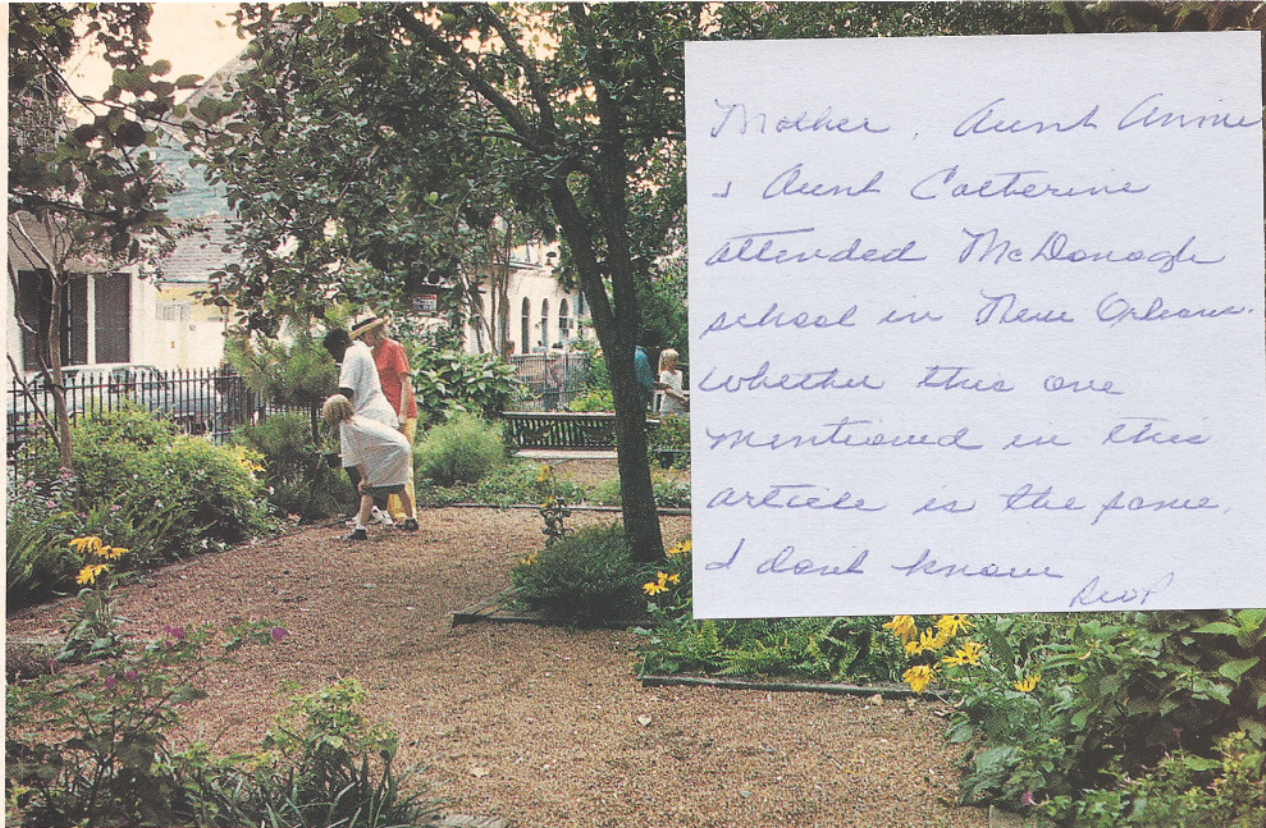 Mother, Aunt Annie
& Aunt Catherine
attended McDonogh
school in New Orleans.
Whether this one
mentioned in this
article is the same,
I dont know
RWP